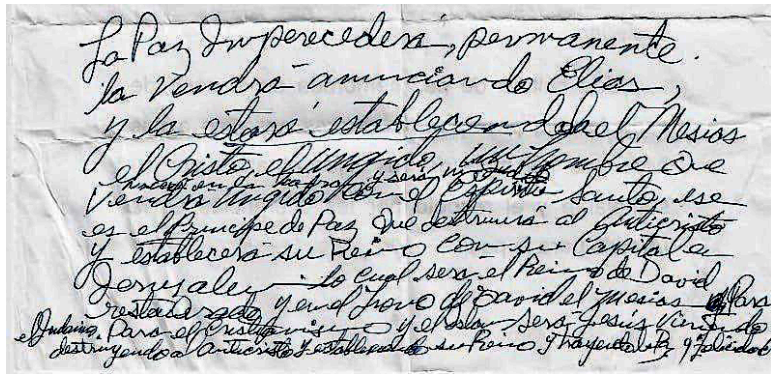 La Paz Imperecedera, permanente.
la vendrá anunciando Elías,
y la estará estableciendola el Mesías
el Cristo, el Ungido, un hombre que
y será
Vendrá Ungido con el Espíritu Santo, ese
es el Príncipe de Paz que destruirá al Anticristo
y establecerá su Reino con su Capital en
Jerusalen lo cual será el Reino de David
restaurado y en el Trono de David el Mesías Para
el Judaísmo, Para el Cristianismo y el Islam será Jesús Viniendo
destruyendo al anticristo y estableciendo su Reino y trayendo la Paz y felicidad